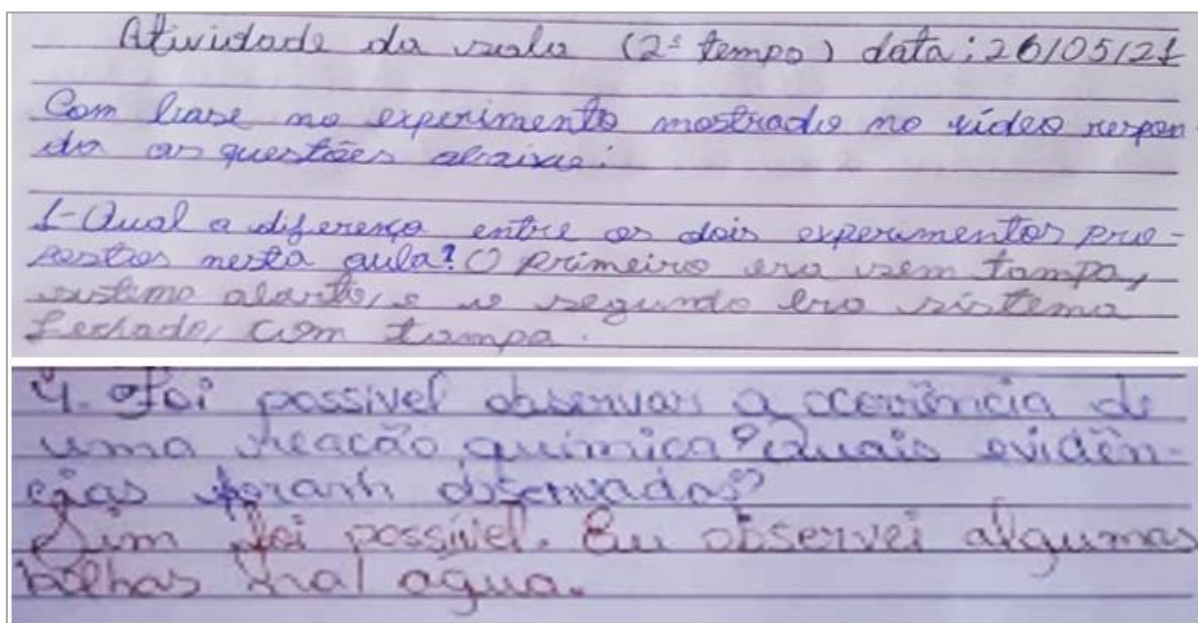 Atividade da sala (2º tempo) data: 26/05/21
Com base no experimento mostrado no vídeo respon
da as questões abaixo:
1-Qual a diferença entre os dois experimentos pro-
postos nesta aula? O primeiro era sem tampa,
sistema aberto, e o segundo era sistema
fechado, com tampa.
4. Foi possivel observar a ocorrência de
uma reacão química? Quais evidên-
cias foram observadas?
Sim foi possível. Eu observei algumas
bolhas na água.